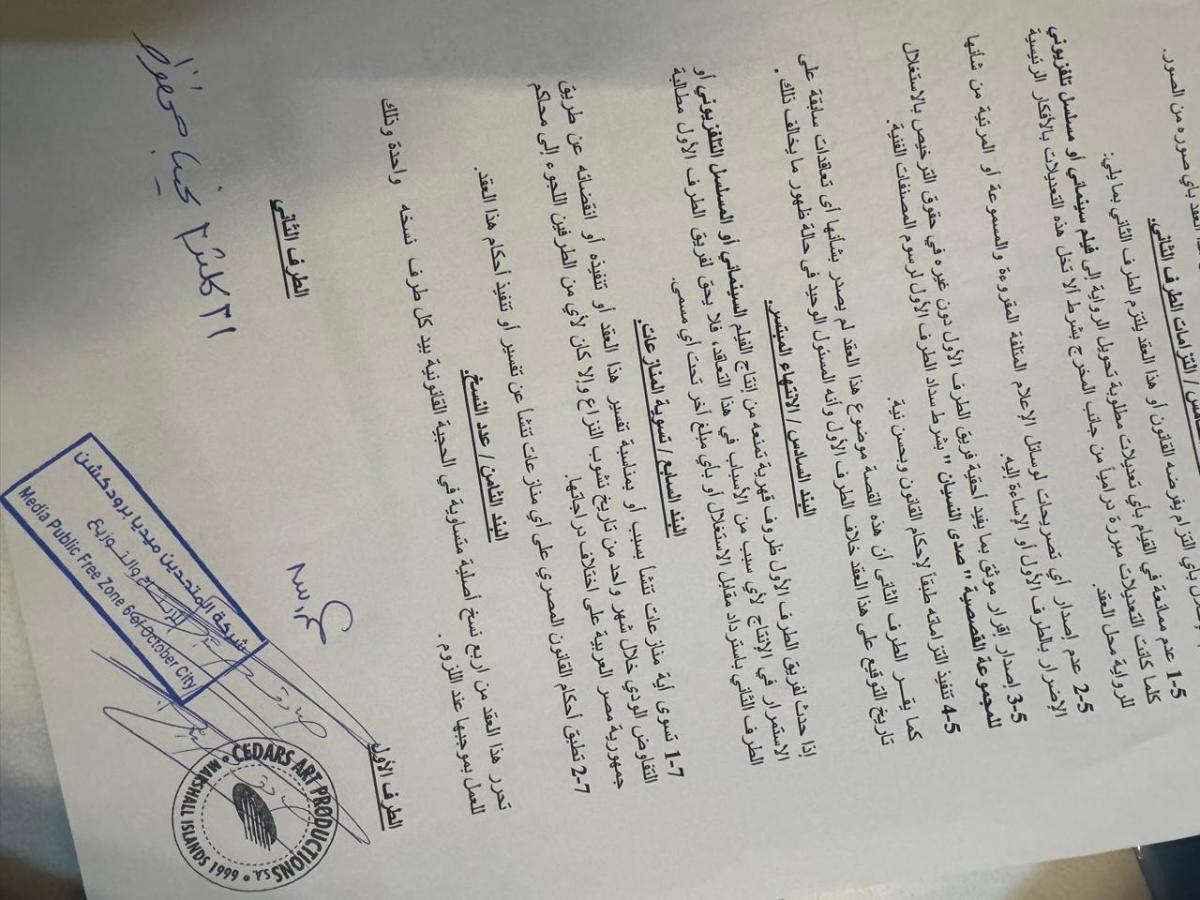 العقد باي صوره من الصور.
الخامس / التزامات الطرف الثاني.
بأي التزام يفرضه القانون أو هذا العقد يلتزم الطرف الثاني بما يلي:
5-1 عدم ممانعة في القيام بأي تعديلات مطلوبة تحويل الرواية إلى فيلم سينمائي أو مسلسل تلفزيوني
كلما كانت التعديلات مبررة دراميا من جانب المخرج بشرط ألا تخل هذه التعديلات بالأفكار الرئيسية
للرواية محل العقد.
5-2 عدم إصدار أي تصريحات لوسائل الإعلام المتلفة المقروءة والمسموعة أو المرئية من شأنها
الإضرار بالطرف الأول أو الإساءة إليه.
5-3 إصدار إقرار موثق بما يفيد أحقية فريق الطرف الأول دون غيره في حقوق الترخيص بالاستغلال
للمجموعة القصصية " صدى النسيان " بشرط سداد الطرف الأول لرسوم المصنفات الفنية.
5-4 تنفيذ التزاماته طبقاً لإحكام القانون وبحسن نية.
كما يقـر الطرف الثانى أن هذه القصة موضوع هذا العقد لم يصدر بشأنها أى تعاقدات سابقة على
تاريخ التوقيع على هذا العقد خلاف الطرف الأول وأنه المسئول الوحيد فى حالة ظهور ما يخالف ذلك .
البند السادس / الانتهاء المبتسر.
إذا حدث لفريق الطرف الأول ظروف قهرية تمنعه من إنتاج الفيلم السينمائي أو المسلسل التلفزيوني أو
الاستمرار في الإنتاج لأي سبب من الأسباب في هذا التعاقد، فلا يحق لفريق الطرف الأول مطالبة
الطرف الثاني باسترداد مقابل الاستغلال أو بأي مبلغ أخر تحت أي مسمى.
البند السابع / تسوية المنازعات.
7-1 تسوى أية منازعات تنشأ بسبب أو بمناسبة تفسير هذا العقد أو تنفيذه أو انقضائه عن طريق
التفاوض الودي خلال شهر واحد من تاريخ نشوب النزاع وإلا كان لأي من الطرفين اللجوء إلى محاكم
جمهورية مصر العربية على اختلاف دراجاتها.
7-2 تطبق أحكام القانون المصري على أي منازعات تنشأ عن تفسير أو تنفيذ أحكام هذا العقد.
البند الثامن / عدد النسخ.
تحرر هذا العقد من اربع نسخ أصلية متساوية في الحجية القانونية بيد كل طرف نسخه واحدة وذلك
للعمل بموجبها عند اللزوم.
الطرف الأول
الطرف الثاني
أم كلثوم نجيب محفوظ
شركة المتحدين ميديا برودكشن
للإنتاج والتوزيع
Media Public Free Zone 6 of October City
CEDARS ART PRODUCTIONS S.A.
MARSHALL ISLANDS 1999